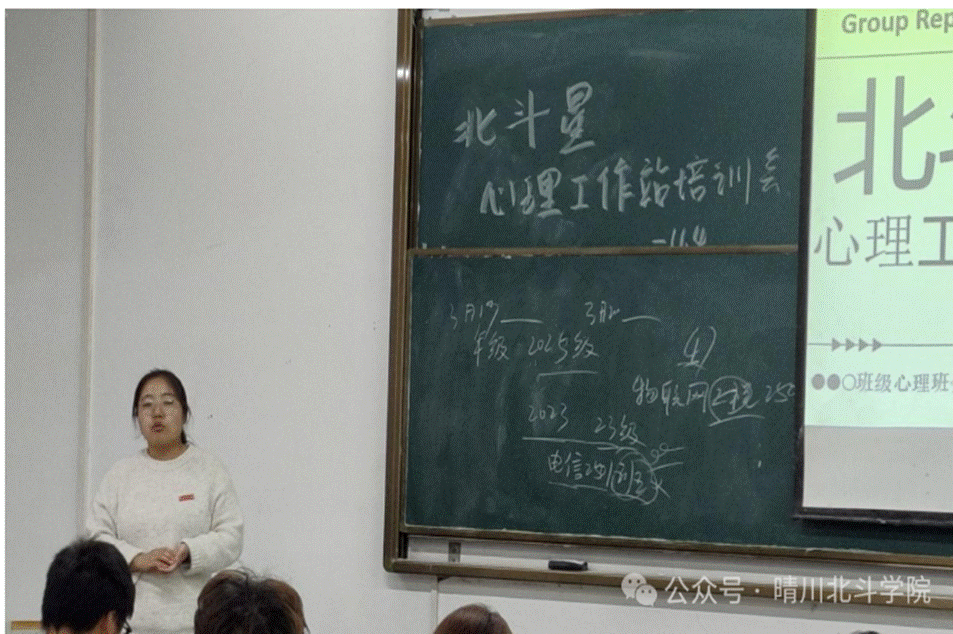 北斗星
心理工作站培训会
-11.4
3月19
年级 2025级
物联网
2023 23级
电信
Group Rep
北
心理工
班级心理班
公众号·晴川北斗学院